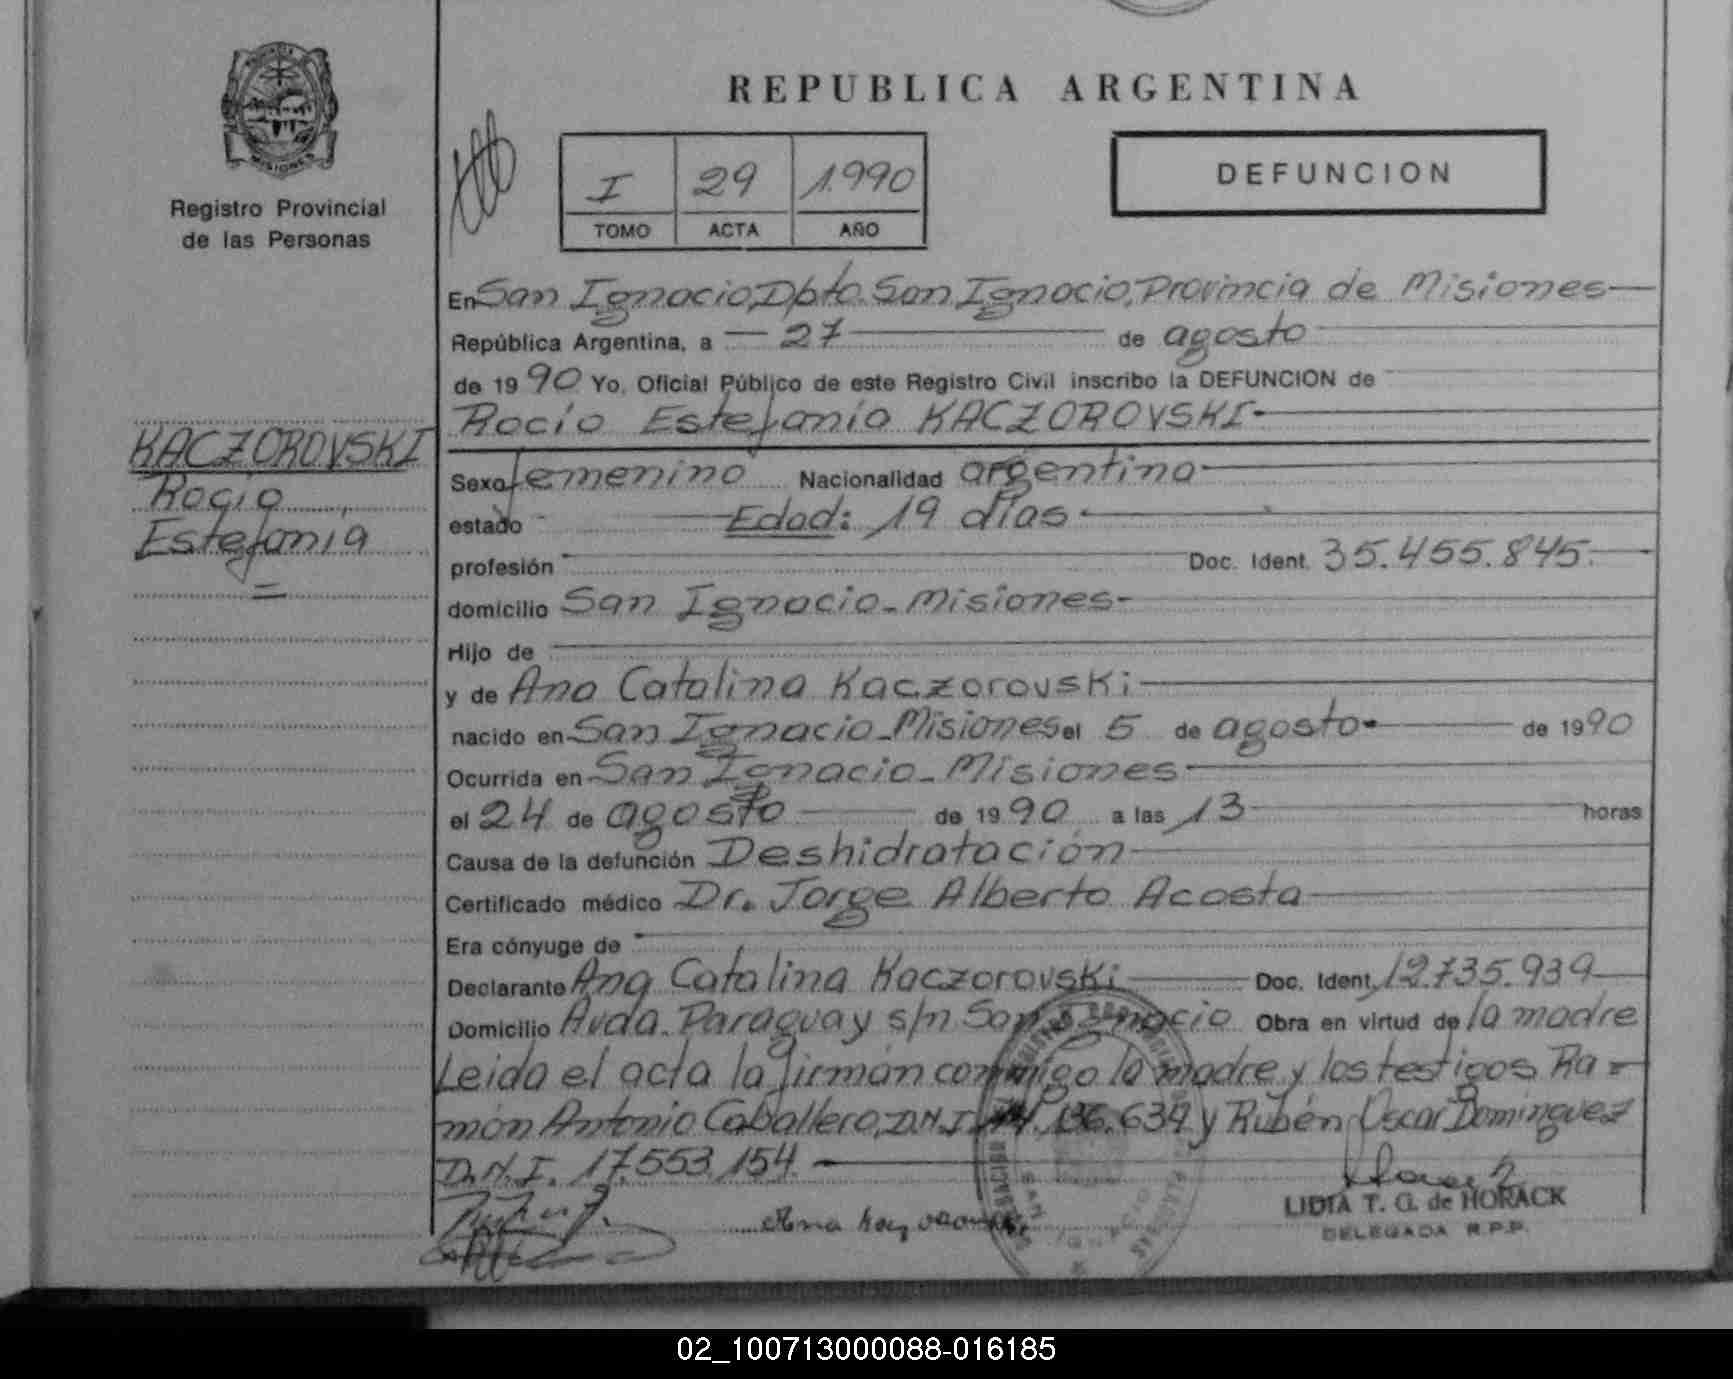 REPUBLICA ARGENTINA
MISIONES
Registro Provincial
de las Personas
I 29 1.990
TOMO ACTA AÑO
DEFUNCION
En San Ignacio, Dpto. San Ignacio, Provincia de Misiones
República Argentina, a 27 de agosto
de 1990 Yo, Oficial Público de este Registro Civil inscribo la DEFUNCION de
Rocío Estefanía KACZOROVSKI
KACZOROVSKI
Rocío
Estefanía
Sexo femenino Nacionalidad argentina
estado Edad: 19 días
profesión Doc. Ident. 35.455.845.
domicilio San Ignacio - Misiones
Hijo de
y de Ana Catalina Kaczorovski
nacido en San Ignacio - Misiones el 5 de agosto de 1990
Ocurrida en San Ignacio - Misiones
el 24 de agosto de 1990 a las 13 horas
Causa de la defunción Deshidratación
Certificado médico Dr. Jorge Alberto Acosta
Era cónyuge de
Declarante Ana Catalina Kaczorovski Doc. Ident. 12.735.939
Domicilio Avda. Paraguay s/n San Ignacio Obra en virtud de la madre
Leida el acta la firman conmigo la madre y los testigos Ra-
món Antonio Caballero, D.N.I. 136.634 y Rubén Oscar Dominguez
D.N.I. 17.553.154
LIDIA T. G. de HORACK
DELEGADA R.P.P.
02_100713000088-016185